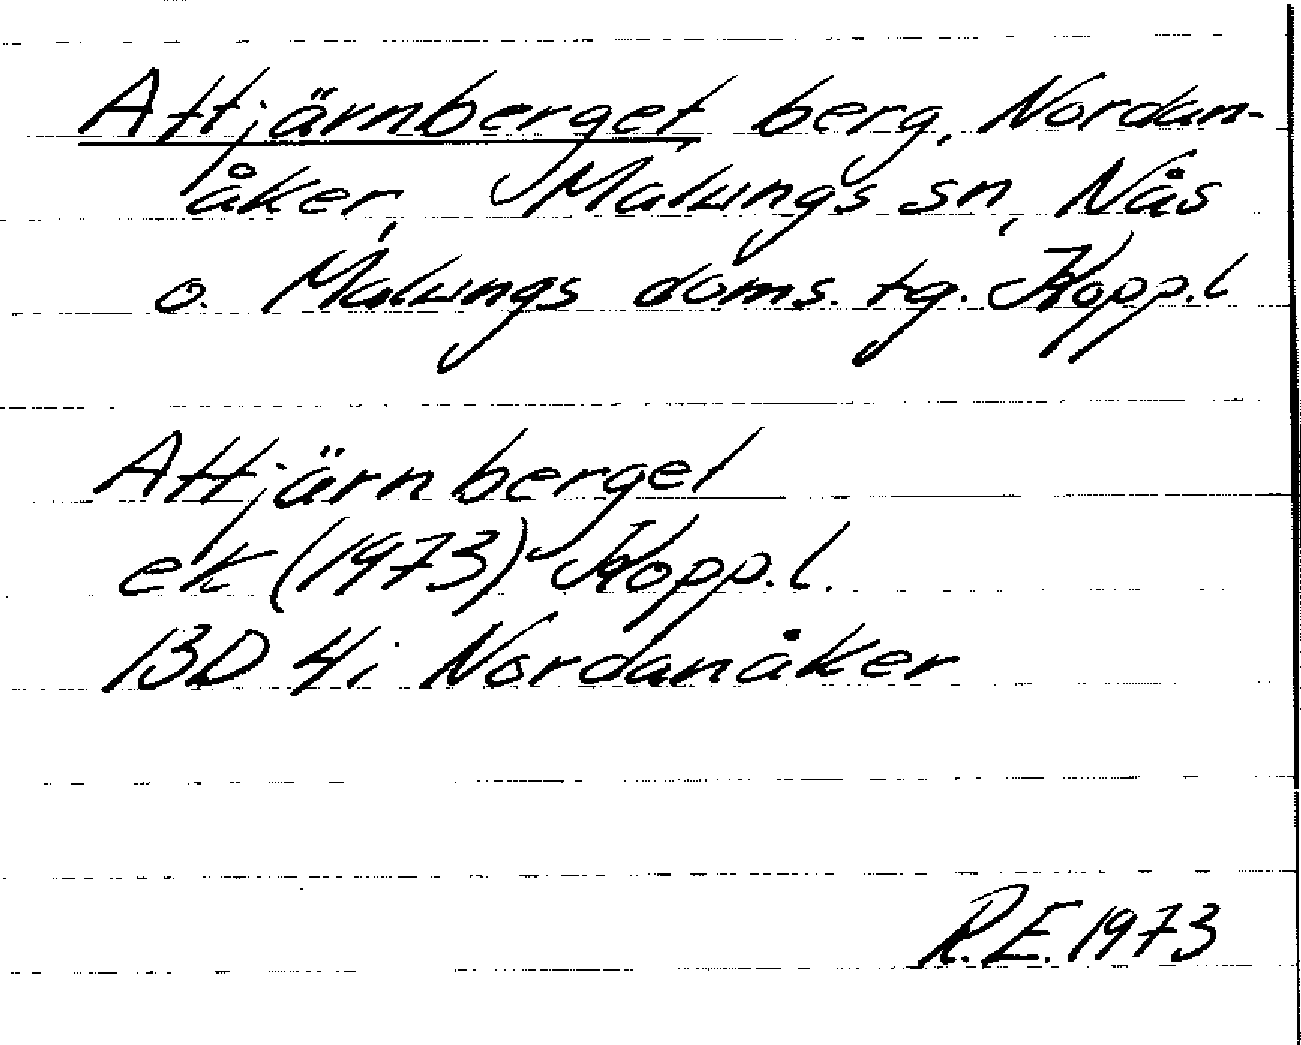 Attjärnberget, berg, Nordan-
åker, Malungs sn, Nås
o. Malungs doms. tg. Kopp.l
Attjärnberget
ek (1973) Kopp.l.
13D 4i Nordanåker
R.E. 1973